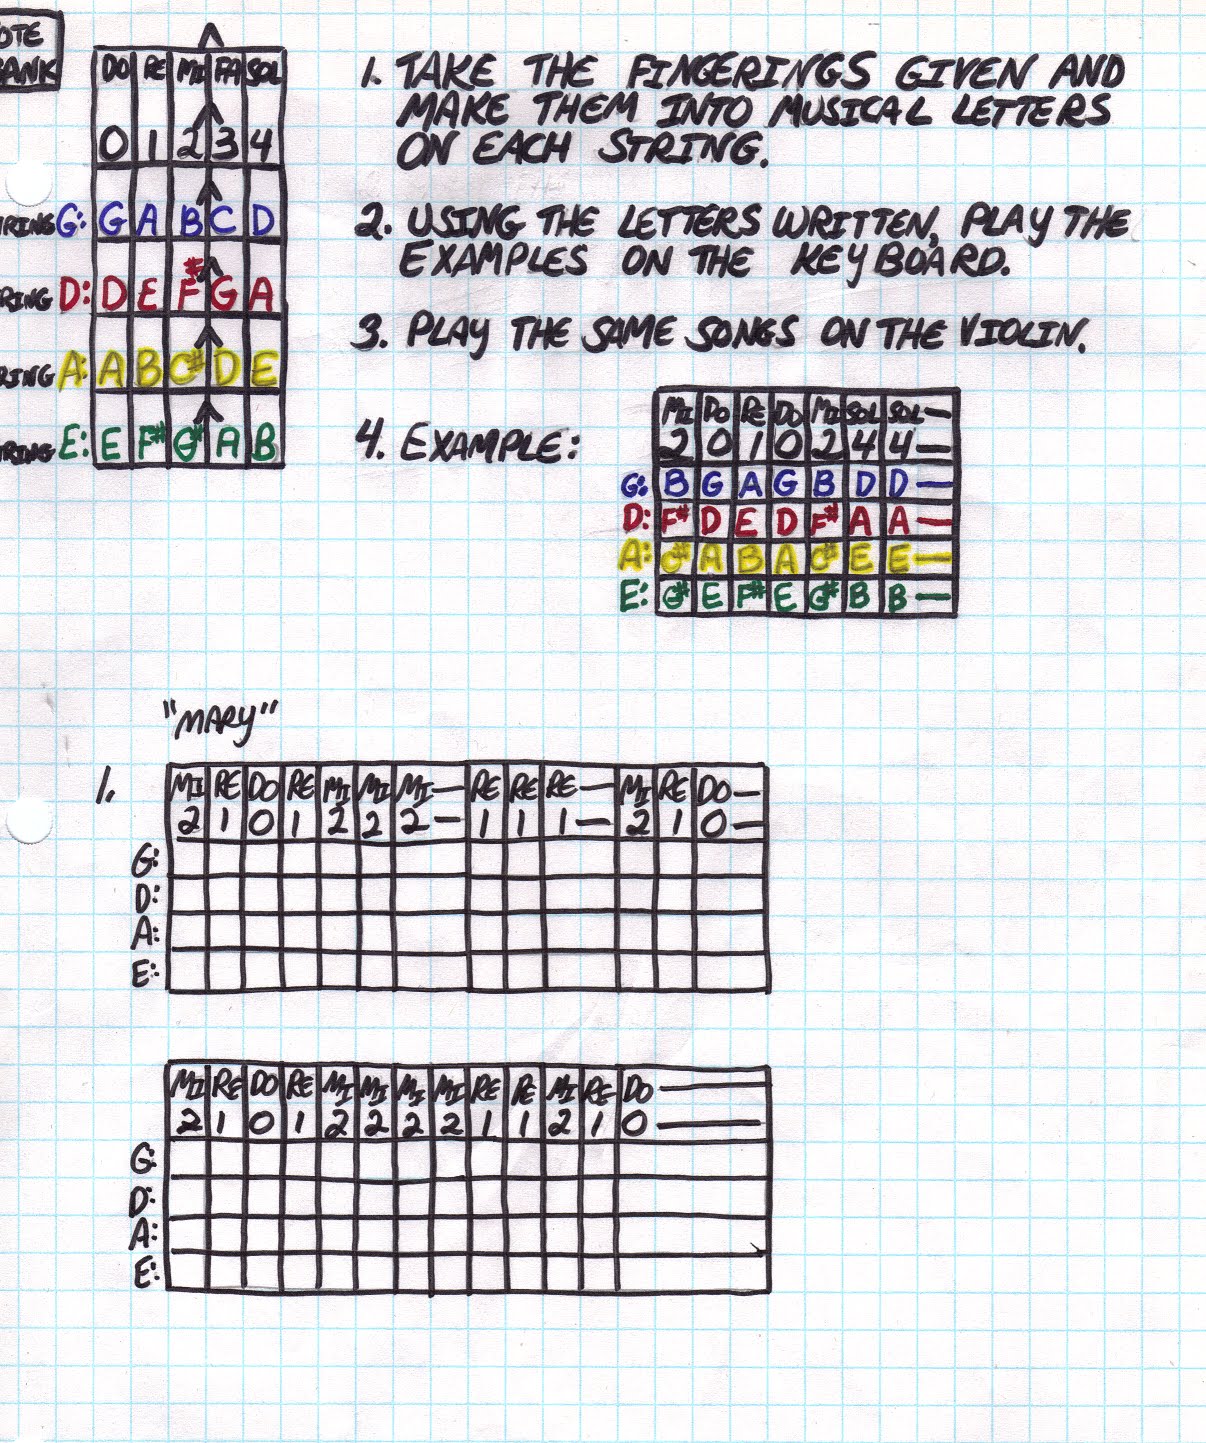 OTE
ANK
DO RE MI FA SOL
0 1 2 3 4
RING G: G A B C D
RING D: D E F# G A
RING A: A B C# D E
RING E: E F# G# A B
1. TAKE THE FINGERINGS GIVEN AND
MAKE THEM INTO MUSICAL LETTERS
ON EACH STRING.
2. USING THE LETTERS WRITTEN, PLAY THE
EXAMPLES ON THE KEYBOARD.
3. PLAY THE SAME SONGS ON THE VIOLIN.
4. EXAMPLE:
MI DO RE DO MI SOL SOL—
2 0 1 0 2 4 4—
G: B G A G B D D—
D: F# D E D F# A A—
A: C# A B A C# E E—
E: G# E F# E G# B B—
"MARY"
1.
MI RE DO RE MI MI MI— RE RE RE— MI RE DO—
2 1 0 1 2 2 2— 1 1 1— 2 1 0—
G:
D:
A:
E:
MI RE DO RE MI MI MI MI RE RE MI RE DO—
2 1 0 1 2 2 2 2 1 1 2 1 0—
G:
D:
A:
E: